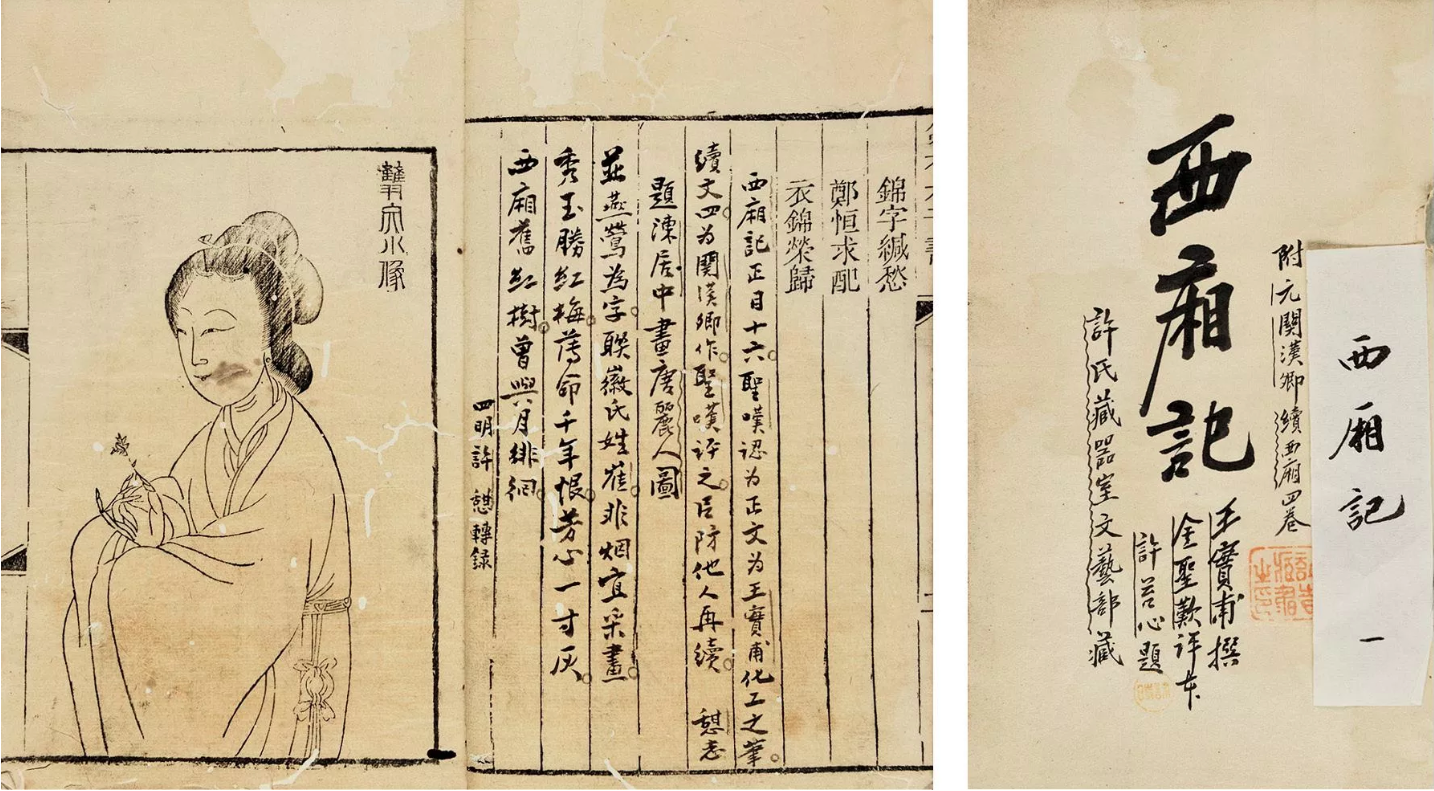 錦字緘愁
鄭恒求配
衣錦榮歸
西廂記正目十六聖嘆認為正文為王實甫化工之筆
續文四為關漢卿作聖嘆評之后防他人再續 憇志
題陳居中畫唐麗人圖
並燕鶯為字聯徽氏姓崔非烟宜采畫
秀玉勝紅梅薄命千年恨芳心一寸灰
西廂舊紅樹曾與月徘徊
四明許 憇轉録
雙文小像
西廂記 一
附元關漢卿續西廂四卷
西廂記
王實甫撰
金聖歎評本
許苦心題
許氏藏器室文藝部藏